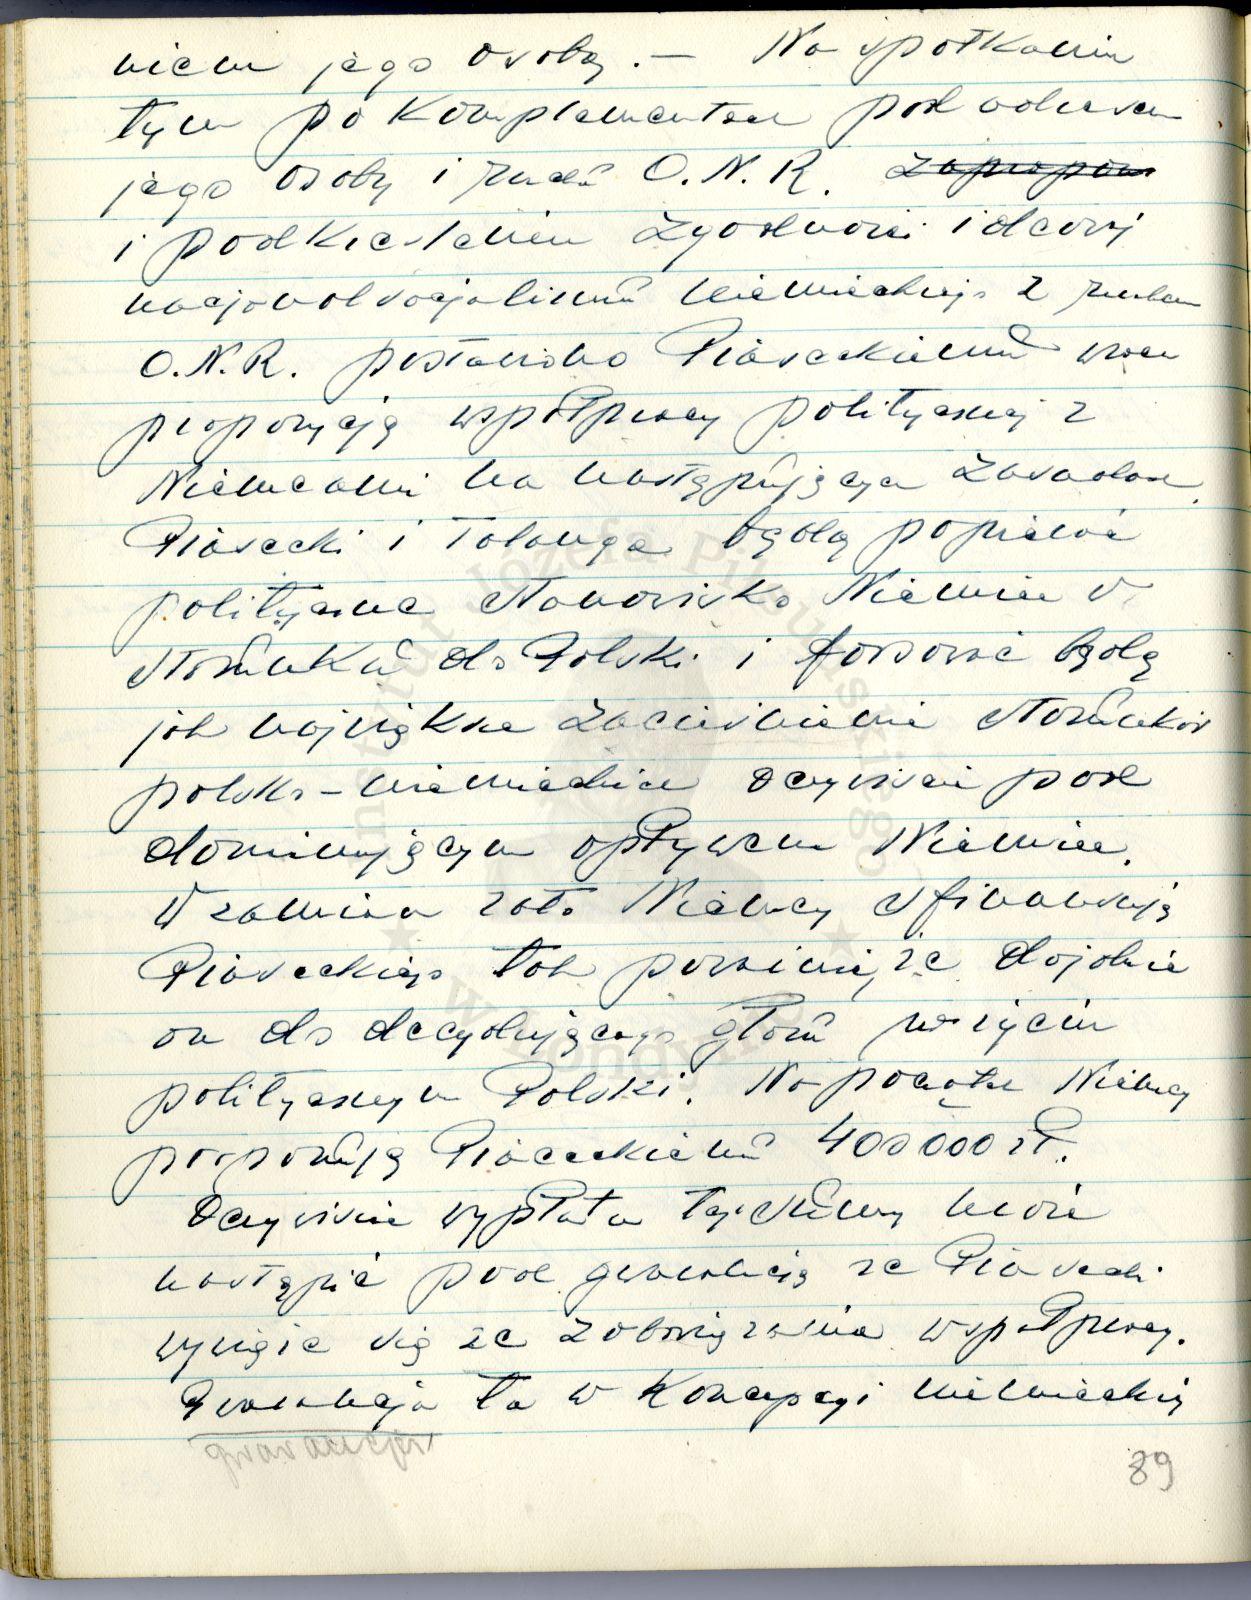 niem jego osoby. — Na spotkaniu
tym po komplementach pod adresem
jego osoby i ruchu O.N.R. zapropon
i podkreśleniu zgodności ideowej
nacjonalsocjalizmu niemieckiego z ruchem
O.N.R. postawiono Piaseckiemu
propozycję współpracy politycznej z
Niemcami na następujących zasadach.
Piasecki i Falanga będą popierać
polityczne stanowisko Niemiec w
stosunku do Polski i forsować będą
jak największe zacieśnienie stosunków
polsko-niemieckich oczywiście pod
dominującym wpływem Niemiec.
W zamian za to Niemcy sfinansują
Piaseckiego tak poważnie, że dojdzie
on do decydującego głosu w życiu
politycznym Polski. Na początek Niemcy
proponują Piaseckiemu 400 000 zł.
Oczywiście wypłata tej sumy może
nastąpić pod gwarancją że Piasecki
wywiąże się ze zobowiązania współpracy.
Gwarancja ta w koncepcji niemieckiej
gwarancja
89
Instytut Józefa Piłsudskiego
w Londynie